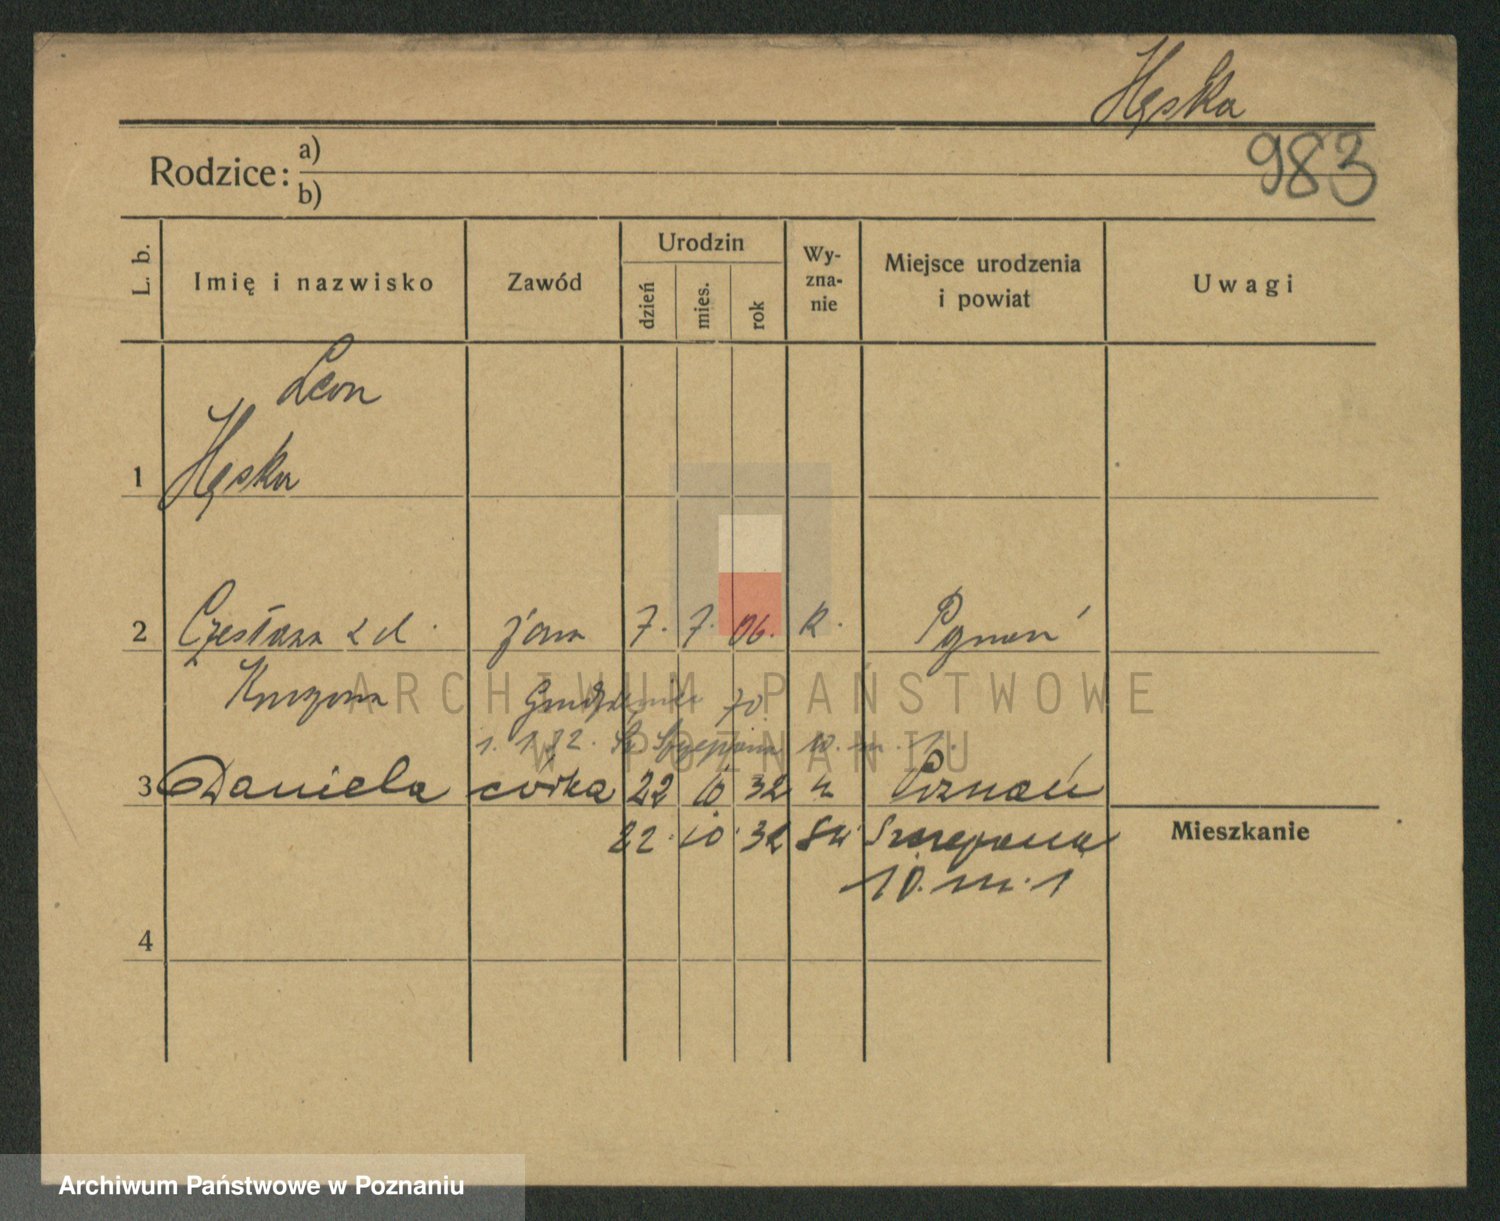 Hęska
983
Rodzice: a)
b)
L. b.
Imię i nazwisko
Zawód
Urodzin
dzień
mies.
rok
Wy-
zna-
nie
Miejsce urodzenia
i powiat
Uwagi
Leon
1 Hęska
2 Czesława z d. żona 7. 7. 06. R. Poznań
ARCHIWUM PAŃSTWOWE
W POZNANIU
70
1. 1. 32. Św. Szczepana 10. m. 1.
3 Daniela córka 22 10 32 Poznań
22. 10. 32 Św. Szczepana
10. m. 1
Mieszkanie
4
Archiwum Państwowe w Poznaniu